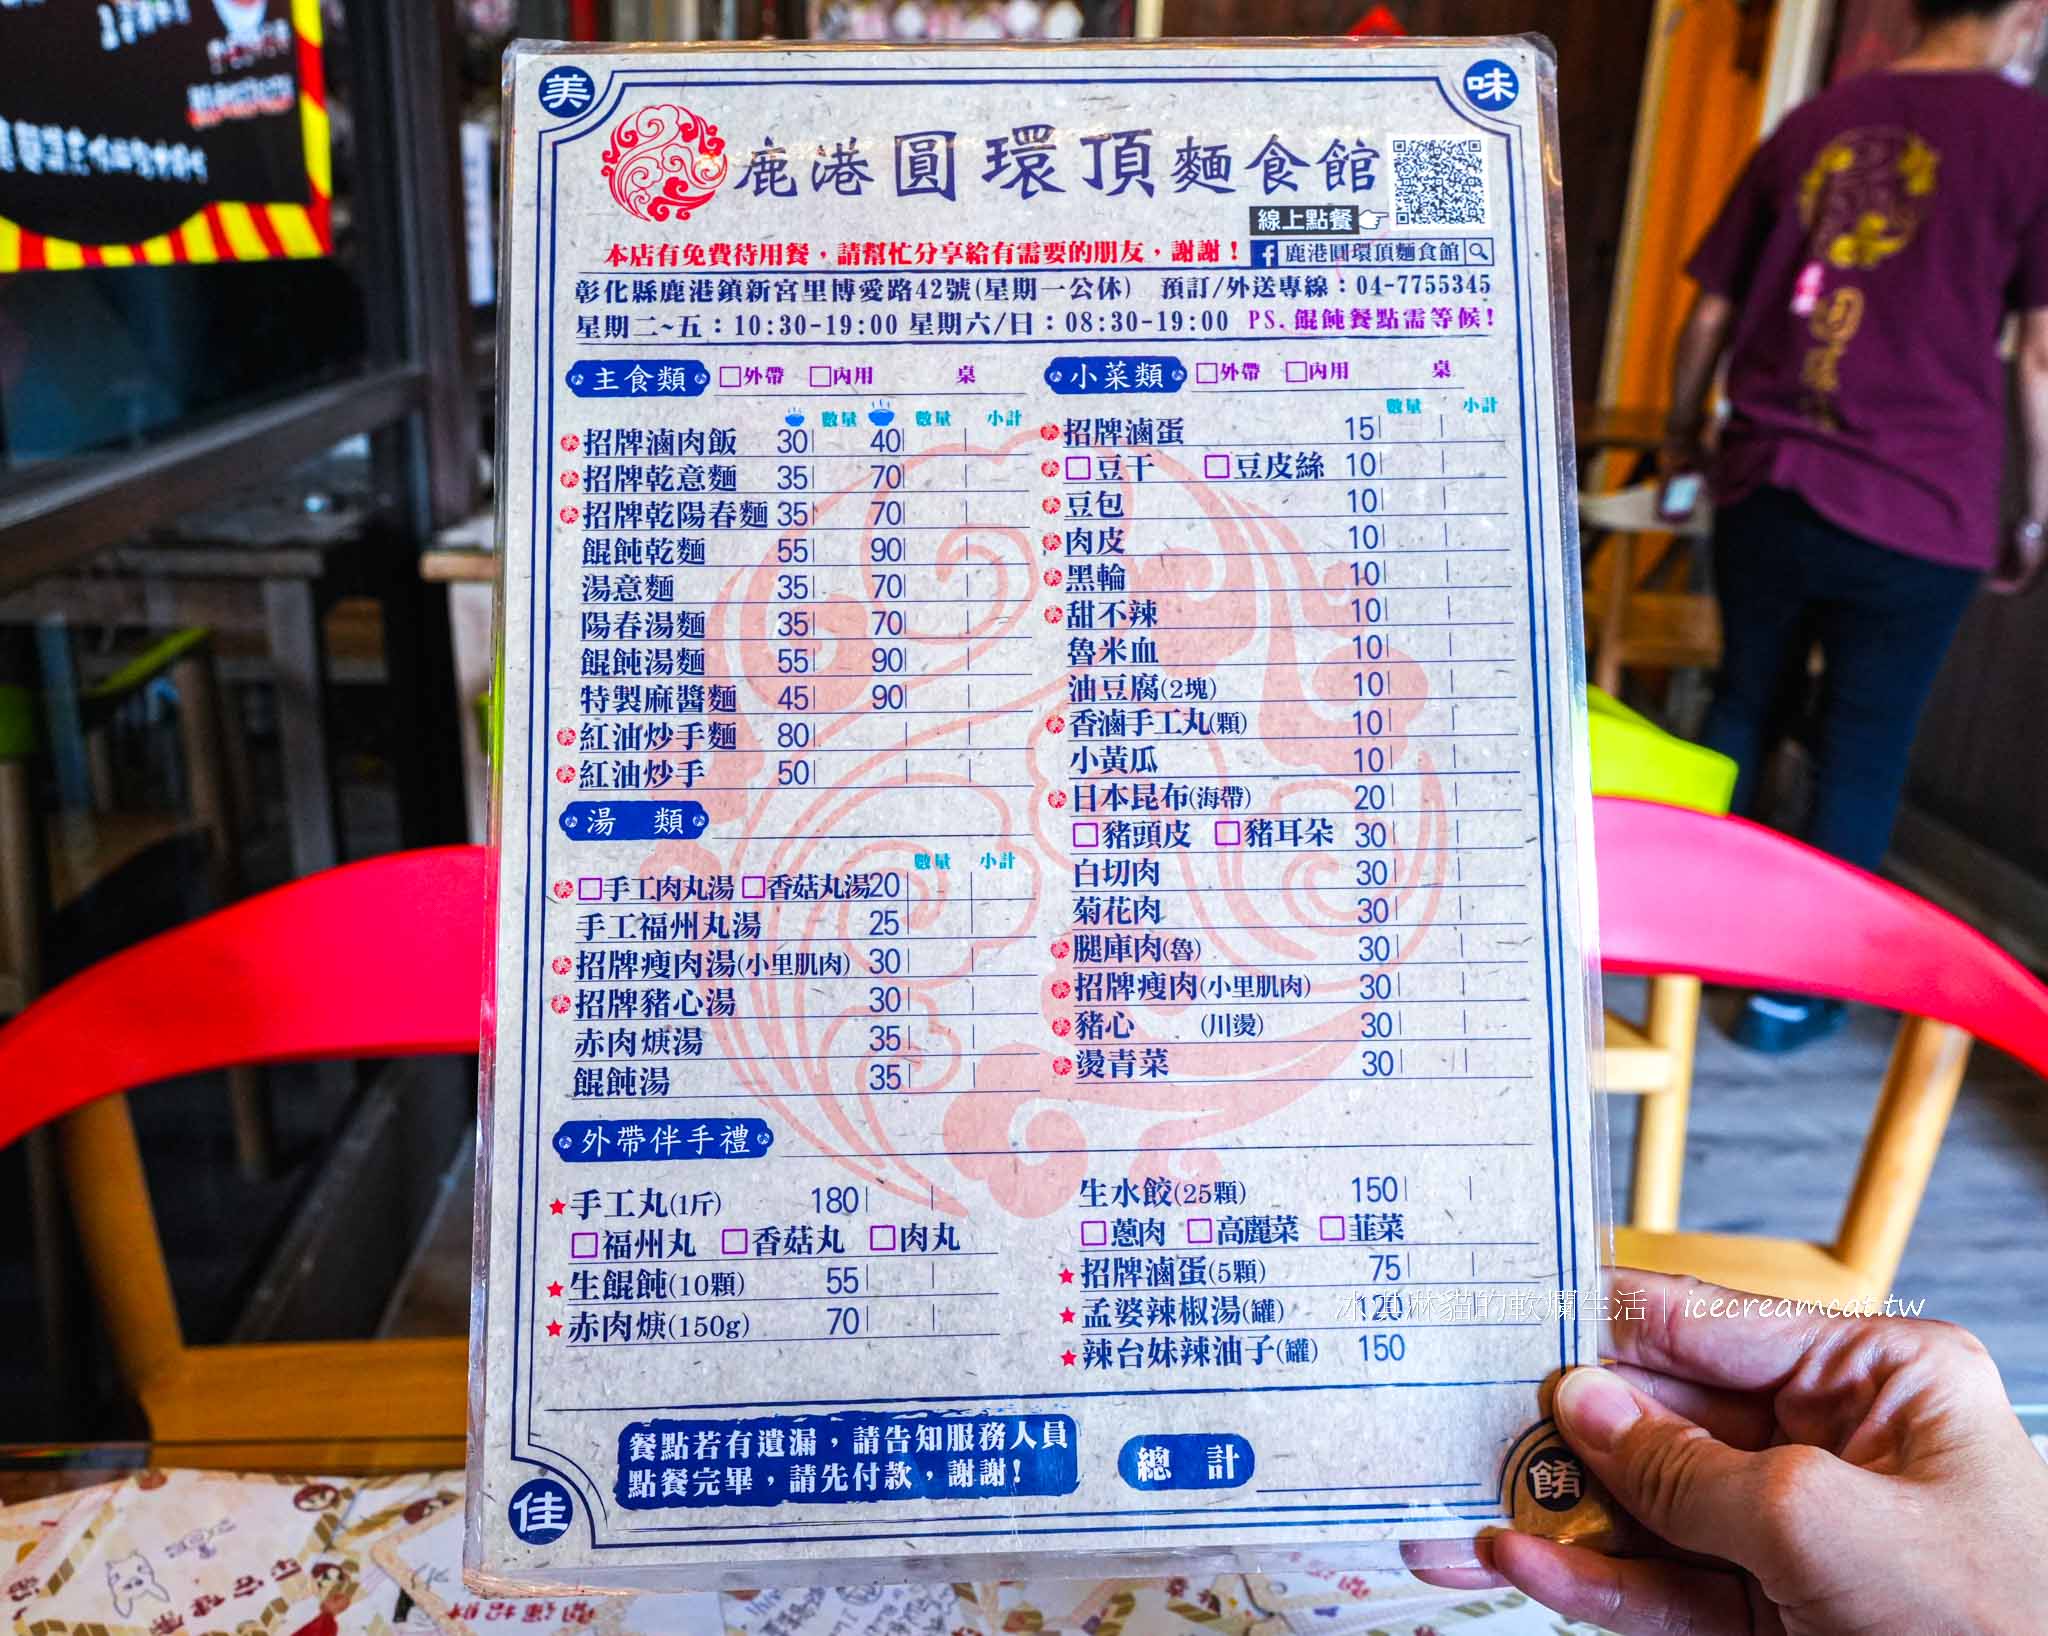 美 味
鹿港圓環頂麵食館
線上點餐
本店有免費待用餐，請幫忙分享給有需要的朋友，謝謝！
f 鹿港圓環頂麵食館
彰化縣鹿港鎮新宮里博愛路42號(星期一公休) 預訂/外送專線：04-7755345
星期二~五：10:30-19:00 星期六/日：08:30-19:00 PS.餛飩餐點需等候！
主食類 □外帶 □內用 桌
數量 數量 小計
招牌滷肉飯 30 40
招牌乾意麵 35 70
招牌乾陽春麵 35 70
餛飩乾麵 55 90
湯意麵 35 70
陽春湯麵 35 70
餛飩湯麵 55 90
特製麻醬麵 45 90
紅油炒手麵 80
紅油炒手 50
湯 類
數量 小計
□手工肉丸湯 □香菇丸湯 20
手工福州丸湯 25
招牌瘦肉湯(小里肌肉) 30
招牌豬心湯 30
赤肉焿湯 35
餛飩湯 35
小菜類 □外帶 □內用 桌
數量 小計
招牌滷蛋 15
□豆干 □豆皮絲 10
豆包 10
肉皮 10
黑輪 10
甜不辣 10
魯米血 10
油豆腐(2塊) 10
香滷手工丸(顆) 10
小黃瓜 10
日本昆布(海帶) 20
□豬頭皮 □豬耳朵 30
白切肉 30
菊花肉 30
腿庫肉(魯) 30
招牌瘦肉(小里肌肉) 30
豬心 (川燙) 30
燙青菜 30
外帶伴手禮
★手工丸(1斤) 180
□福州丸 □香菇丸 □肉丸
★生餛飩(10顆) 55
★赤肉焿(150g) 70
生水餃(25顆) 150
□蔥肉 □高麗菜 □韮菜
★招牌滷蛋(5顆) 75
★孟婆辣椒湯(罐) 120
★辣台妹辣油子(罐) 150
冰淇淋貓的軟爛生活｜icecreamcat.tw
餐點若有遺漏，請告知服務人員
點餐完畢，請先付款，謝謝！
總 計
佳 餚